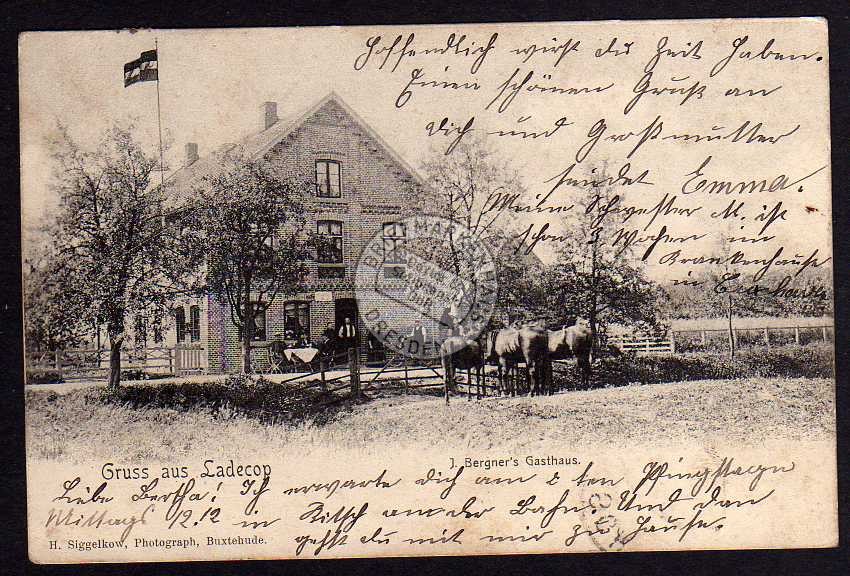 Hoffendlich wirst du Zeit Haben.
Einen schönen Gruß an
dich und Großmutter
sendet Emma.
Meine Schwester M. ist
schon 3 Wochen im
Krankenhause
in
Gruss aus Ladecop
J. Bergner's Gasthaus.
Liebe Bertha! Ich erwarte dich am 2 ten Pfingstagn
Mittags 12.12 in an der Bahn. Und dan
gehst du mit mir zu Hause.
H. Siggelkow, Photograph, Buxtehude.
DRESDEN